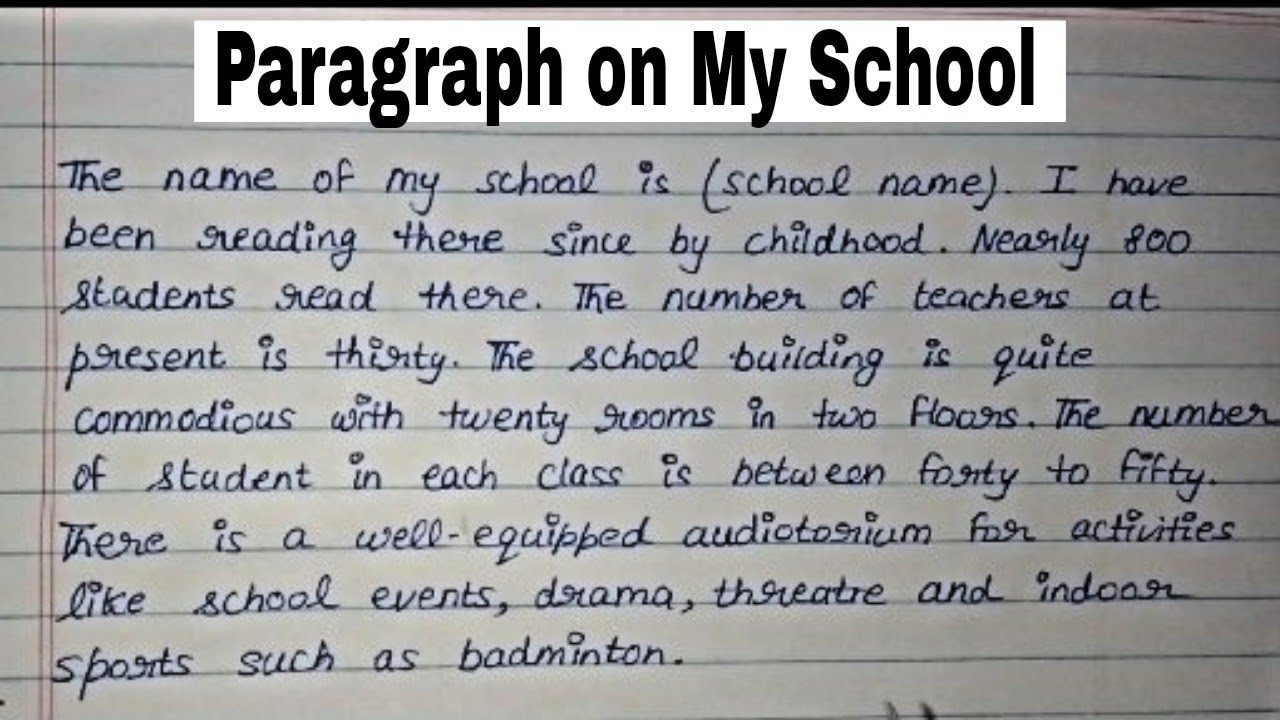 Paragraph on My School
The name of my school is (school name). I have
been reading there since by childhood. Nearly 800
students read there. The number of teachers at
present is thirty. The school building is quite
commodious with twenty rooms in two floors. The number
of student in each class is between forty to fifty.
There is a well-equipped audiotorium for activities
like school events, drama, threatre and indoor
sports such as badminton.